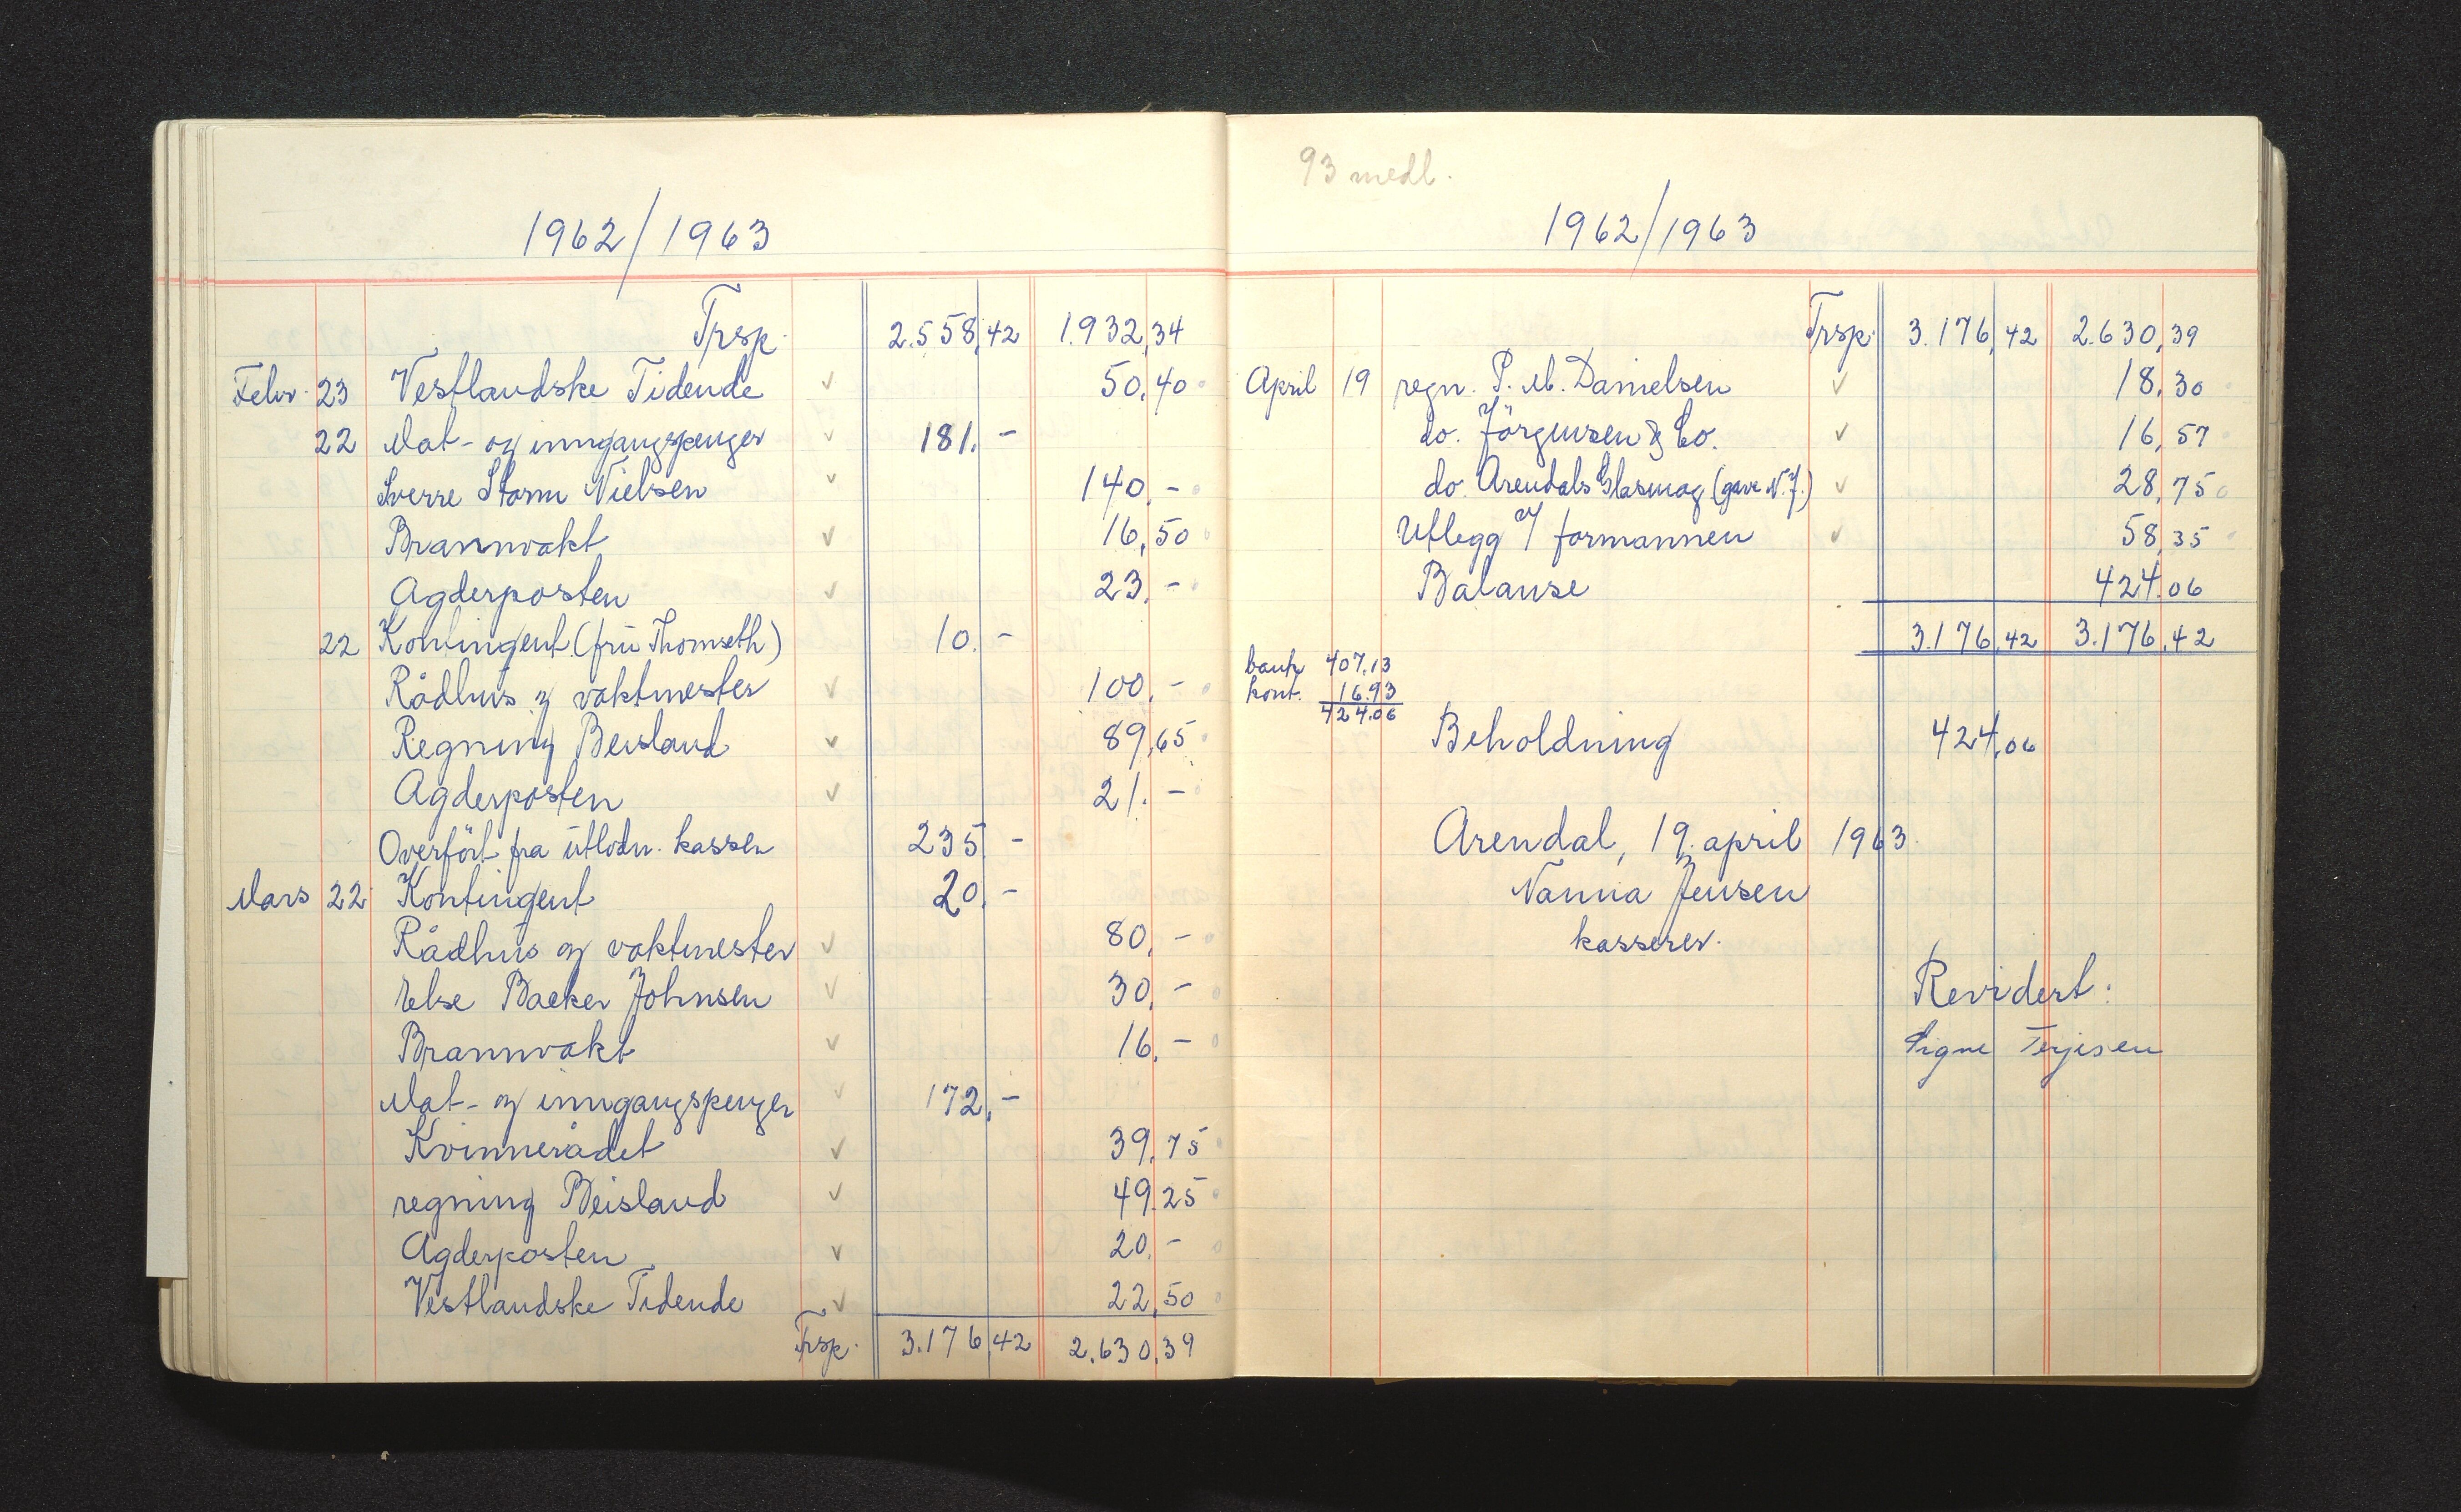 1962/1963
Trsp. 2.558,42 1.932,34
Febr. 23 Vestlandske Tidende ✓ 50,40
22 Mat- og inngangspenger ✓ 181,-
Sverre Storm Nielsen ✓ 140,-
Brannvakt ✓ 16,50
Agderposten ✓ 23,-
22 Kontingent (fru Thomseth) 10,-
Rådhus og vaktmester ✓ 100,-
Regning Beisland ✓ 89,65
Agderposten ✓ 21,-
Overført fra utlodn. kassen 235,-
Mars 22 Kontingent 20,-
Rådhus og vaktmester ✓ 80,-
Else Backer Johnsen ✓ 30,-
Brannvakt ✓ 16,-
Mat- og inngangspenger ✓ 172,-
Kvinnerådet ✓ 39,75
regning Beisland ✓ 49,25
Agderposten ✓ 20,-
Vestlandske Tidende ✓ 22,50
Trsp. 3.176,42 2.630,39
93 medl.
1962/1963
Trsp. 3.176,42 2.630,39
April 19 regn. P. M. Danielsen ✓ 18,30
do. Jörgensen & Co. ✓ 16,57
do. Arendals Glasmag (gave N.J.) ✓ 28,75
Utlegg v/ formannen ✓ 58,35
Balanse 424,06
3.176,42 3.176,42
bank 407.13
kont. 16.93
424.06
Beholdning 424,06
Arendal, 19. april 1963.
Nanna Jensen
kasserer.
Revidert:
Signe Terjesen